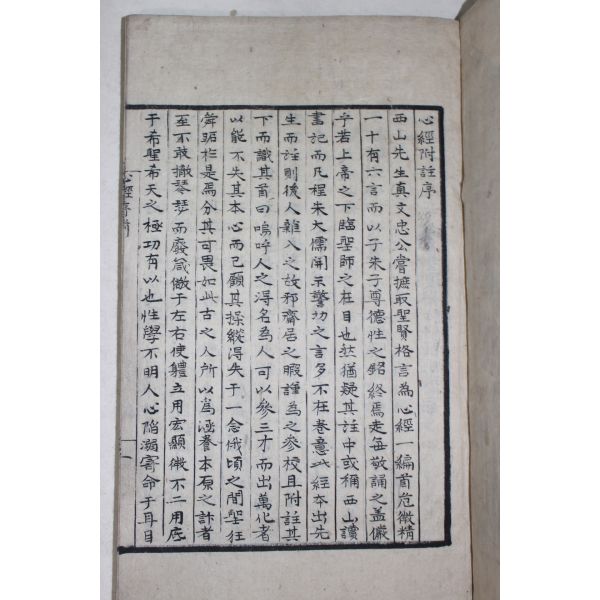 心經附註序
西山先生真文忠公嘗摭取聖賢格言為心經一編首危微精
一十有六言而以子朱子尊德性之銘終焉走每敬誦之盖儼
乎若上帝之下臨聖師之在目也然猶疑其註中或稱西山讀
書記而凡程朱大儒開示警切之言多不在卷意此經本出先
生而註則後人雜入之故邪齋居之暇謹為之參校且附註其
下而識其首曰嗚呼人之得名為人可以參三才而出萬化者
以能不失其本心而已顧其操縱得失于一念俄頃之間聖狂
舜跖於是焉分其可畏如此古之人所以爲涵養本原之計者
至不敢撤琴瑟而廢箴儆于左右使軆立用宏顯微不二用底
于希聖希天之極功有以也性學不明人心陷溺寄命于耳目
心經序